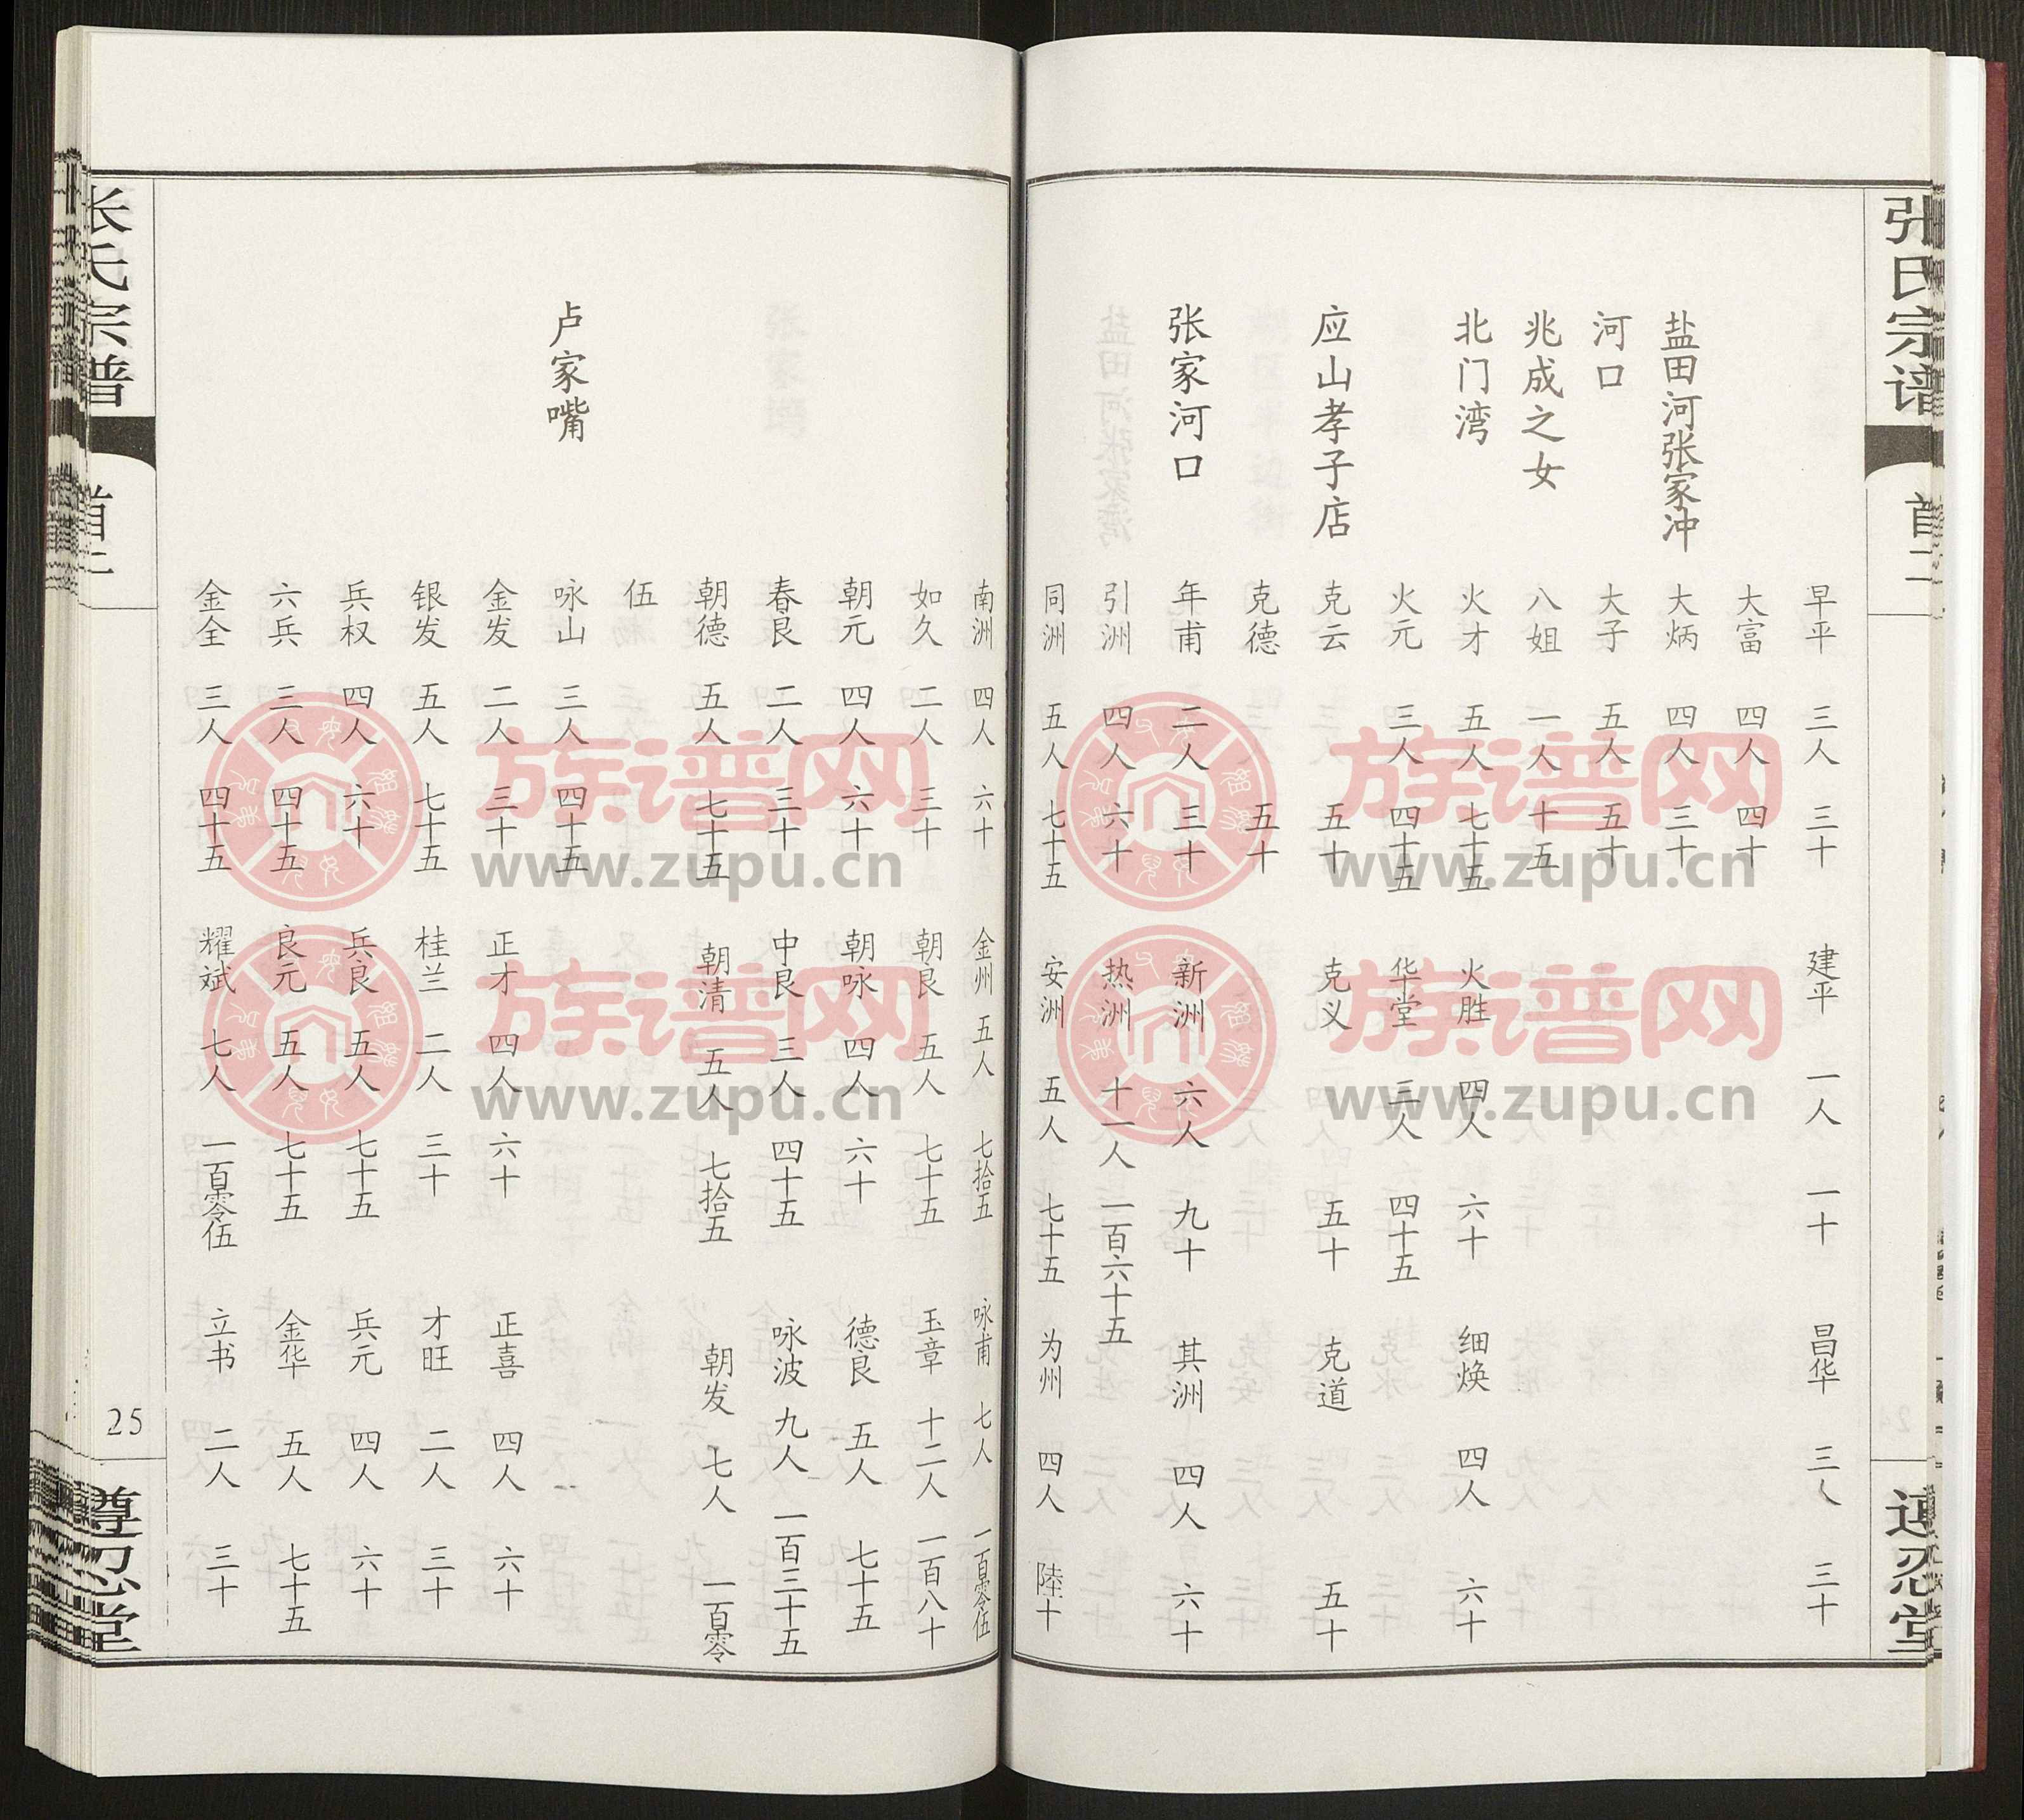 张氏宗谱
首二
早平 三人 三十 建平 一人 一十 昌华 三人 三十
大富 四人 四十
盐田河张家冲 大炳 四人 三十
河口 大子 五人 五十
兆成之女 八姐 一人 十五
北门湾 火才 五人 七十五 火胜 四人 六十 细焕 四人 六十
火元 三人 四十五 华堂 三人 四十五
应山孝子店 克云 五十 克义 五十 克道 五十
克德 五十
张家河口 年甫 二人 三十 新洲 六人 九十 其洲 四人 六十
引洲 四人 六十 热洲 十一人 一百六十五
同洲 五人 七十五 安洲 五人 七十五 为州 四人 陸十
忍堂
南洲 四人 六十 金州 五人 七拾五 咏甫 七人 一百零伍
如久 二人 三十 朝良 五人 七十五 玉章 十二人 一百八十
朝元 四人 六十 朝咏 四人 六十 德良 五人 七十五
春良 二人 三十 中良 三人 四十五 咏波 九人 一百三十五
朝德 五人 七十五 朝清 五人 七拾五 朝发 七人 一百零
伍
卢家嘴 咏山 三人 四十五
金发 二人 三十 正才 四人 六十 正喜 四人 六十
银发 五人 七十五 桂兰 二人 三十 才旺 二人 三十
兵权 四人 六十 兵良 五人 七十五 兵元 四人 六十
六兵 三人 四十五 良元 五人 七十五 金华 五人 七十五
金全 三人 四十五 耀斌 七人 一百零伍 立书 二人 三十
张氏宗谱
首二
25
尊忍堂
族谱网
www.zupu.cn
族谱网
www.zupu.cn
族谱网
www.zupu.cn
族谱网
www.zupu.cn